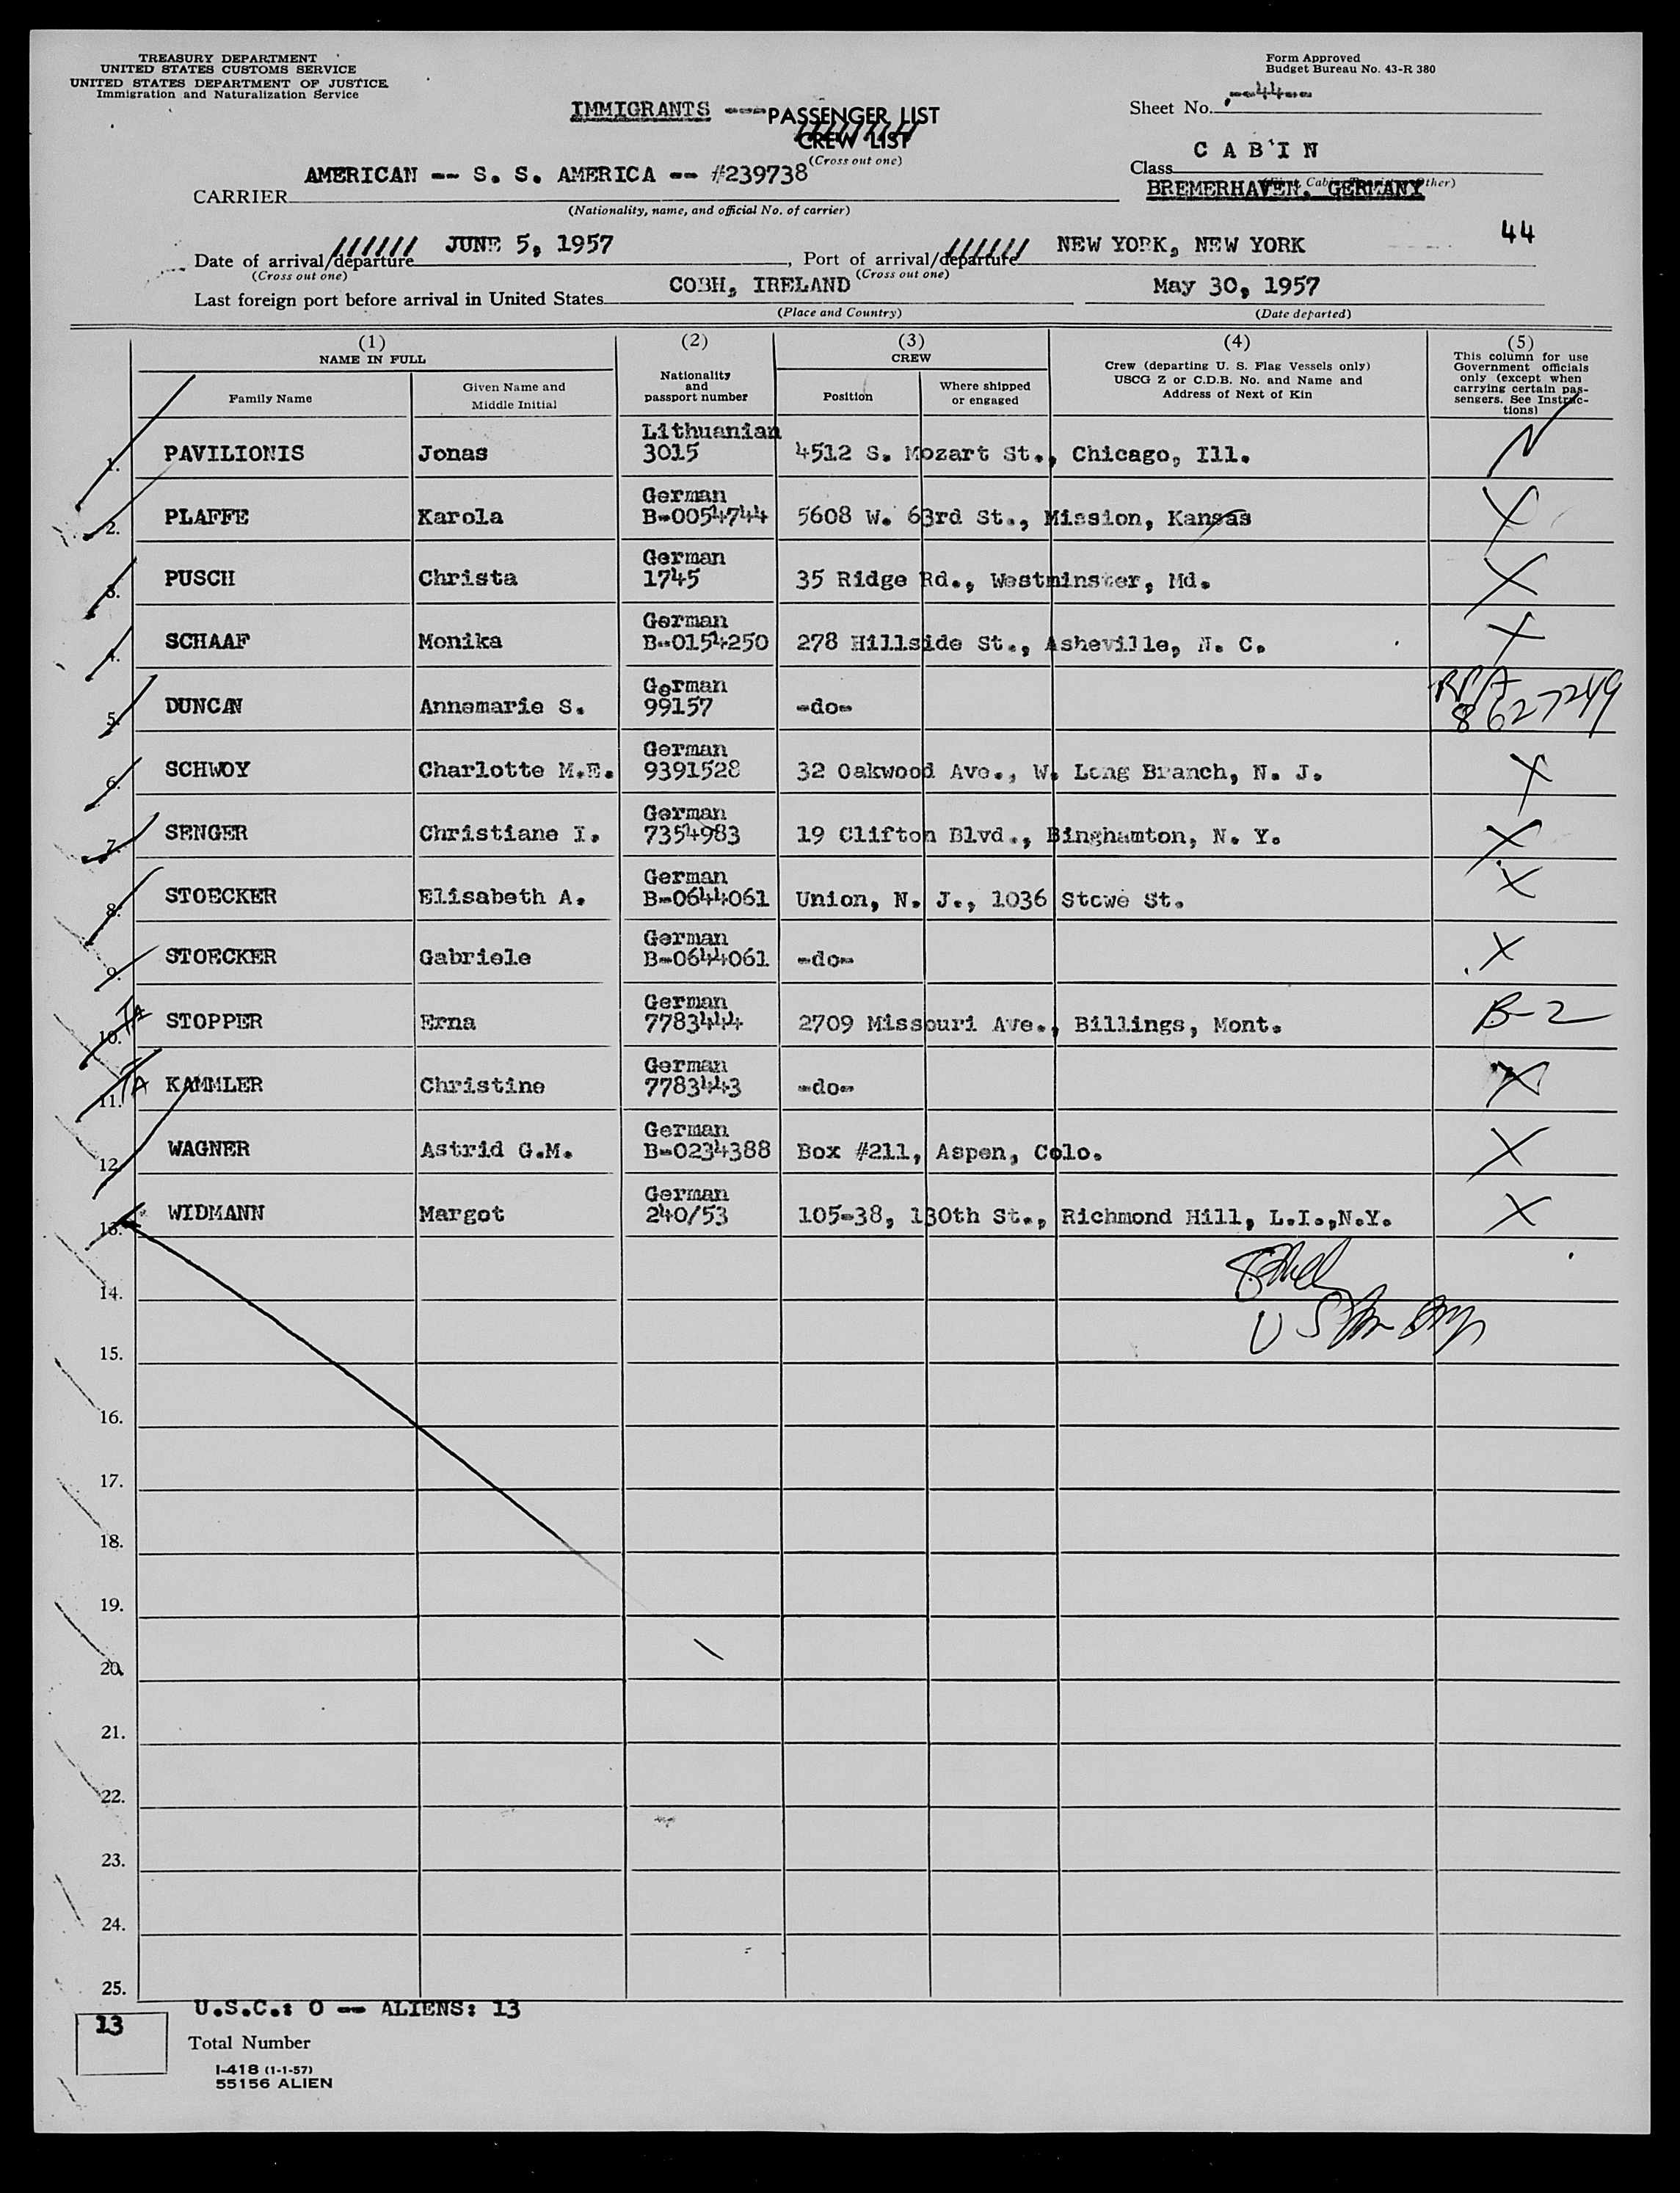 TREASURY DEPARTMENT
UNITED STATES CUSTOMS SERVICE
UNITED STATES DEPARTMENT OF JUSTICE
Immigration and Naturalization Service
Form Approved
Budget Bureau No. 43-R 380
Sheet No. --44--
IMMIGRANTS ---PASSENGER LIST
CREW LIST
(Cross out one)
Class C A B I N
BREMERHAVEN, GERMANY
CARRIER AMERICAN -- S. S. AMERICA -- #239738
(Nationality, name, and official No. of carrier)
44
Date of arrival/departure JUNE 5, 1957, Port of arrival/departure NEW YORK, NEW YORK
(Cross out one) (Cross out one)
Last foreign port before arrival in United States COBH, IRELAND May 30, 1957
(Place and Country) (Date departed)
(1) (2) (3) (4) (5)
NAME IN FULL
Family Name
Given Name and Middle Initial
Nationality and passport number
CREW
Position
Where shipped or engaged
Crew (departing U. S. Flag Vessels only)
USCG Z or C.D.B. No. and Name and
Address of Next of Kin
This column for use
Government officials
only (except when
carrying certain pas-
sengers. See Instruc-
tions)
1. PAVILIONIS Jonas Lithuanian 3015 4512 S. Mozart St., Chicago, Ill. N
2. PLAFFE Karola German B-0054744 5608 W. 63rd St., Mission, Kansas X
3. PUSCH Christa German 1745 35 Ridge Rd., Westminster, Md. X
4. SCHAAF Monika German B-0154250 278 Hillside St., Asheville, N. C. X
5. DUNCAN Annemarie S. German 99157 -do- 8627249
6. SCHWOY Charlotte M.E. German 9391528 32 Oakwood Ave., W. Long Branch, N. J. X
7. SENGER Christiane I. German 7354983 19 Clifton Blvd., Binghamton, N. Y. X
8. STOECKER Elisabeth A. German B-0644061 Union, N. J., 1036 Stowe St. X
9. STOECKER Gabriele German B-0644061 -do- X
10. TA STOPPER Erna German 7783444 2709 Missouri Ave., Billings, Mont. B-2
11. TA KAMMLER Christine German 7783443 -do- X
12. WAGNER Astrid G.M. German B-0234388 Box #211, Aspen, Colo. X
13. WIDMANN Margot German 240/53 105-38, 130th St., Richmond Hill, L.I.,N.Y. X
14.
15.
16.
17.
18.
19.
20.
21.
22.
23.
24.
25.
U.S.C.: 0 -- ALIENS: 13
13
Total Number
I-418 (1-1-57)
55156 ALIEN